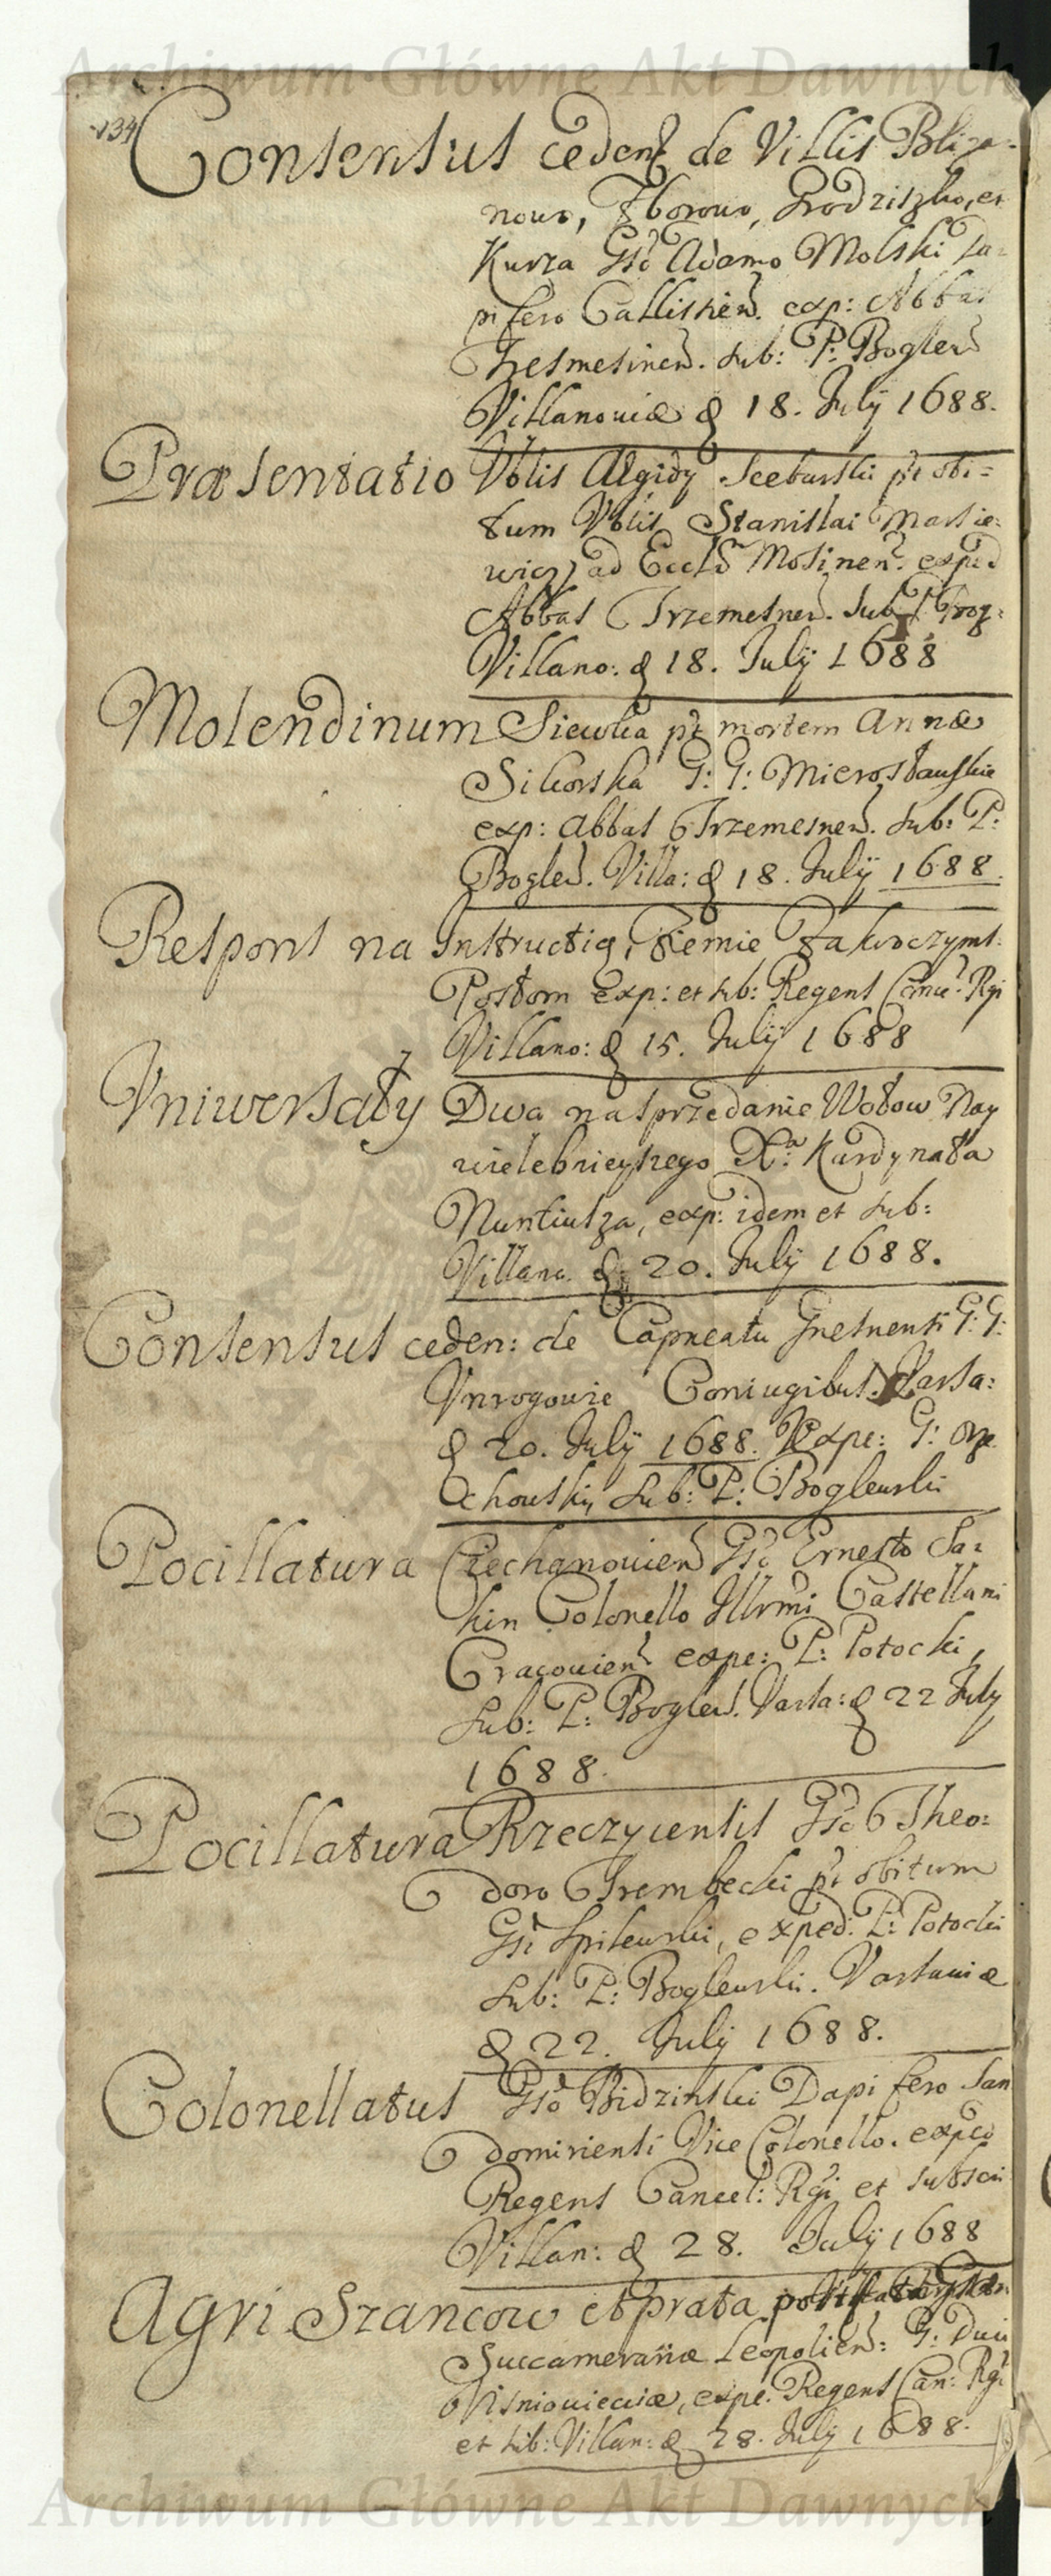 Archiwum Główne Akt Dawnych
134
Consensus cedend de Villis Bliza=
nouo, Zborouo, Grodziszko, et
Kurza Gso Adamo Molski Da=
pifero Callishien. exp: Abbas
Tresmesinen. sub: P: Boglew
Villanouiæ d 18. July 1688.
Præsentatio Vblis Ægidy pt obi=
tum Vblis Stanislai
ad Eccls Mosinen. exped
Abbas Trzemesnen. sub
Villano: d 18. July 1688
Molendinum Siewka pt mortem Annæ
Sikorska G: G: Mierosławskie
exp: Abbas Trzemesnen. sub: P:
Boglew. Villa: d 18. July 1688.
Respons na Instructią, Ziemie Zakroczyms:
Posłom exp: et sub: Regens Canc: Rgi
Villano: d 15. July 1688
Vniwersały Dwa na sprzedanie Wołow Nay
wielebnieyszego Xa Kardynała
Nuntiusza, exp: idem et sub:
Villano. d 20. July 1688.
Consensus ceden: de Capneatu Gnesnensi G: G:
Vnrogowie Coniugibus. Varsa:
d 20. July 1688. Expe: G: Orze
chouski sub: P: Boglewski
Pocillatura Ciechanouien Gso Ernesto Sa=
kin Colonello Illrmi Castellani
Cracouien expe: P: Potocki,
sub: P: Boglew. Varsa: d 22 July
1688.
Pocillatura Rzeczycensis Gso Theo=
doro Trembecki pt obitum
Gsi Spilewski, exped: P: Potocki
sub: P: Boglewski. Varsauiæ
d 22. July 1688.
Colonellatus Gso Bidzinski Dapifero San
domiriensi Vice Colonello. exped
Regens Cancel: Rgi et subscri
Villan: d 28. July 1688
Agri Szancow et prata
Succamerariæ Leopolien: G: Duci
Wisniouieciæ, expe: Regens Can: Rgi
et sub: Villan: d 28. July 1688.
Archiwum Główne Akt Dawnych